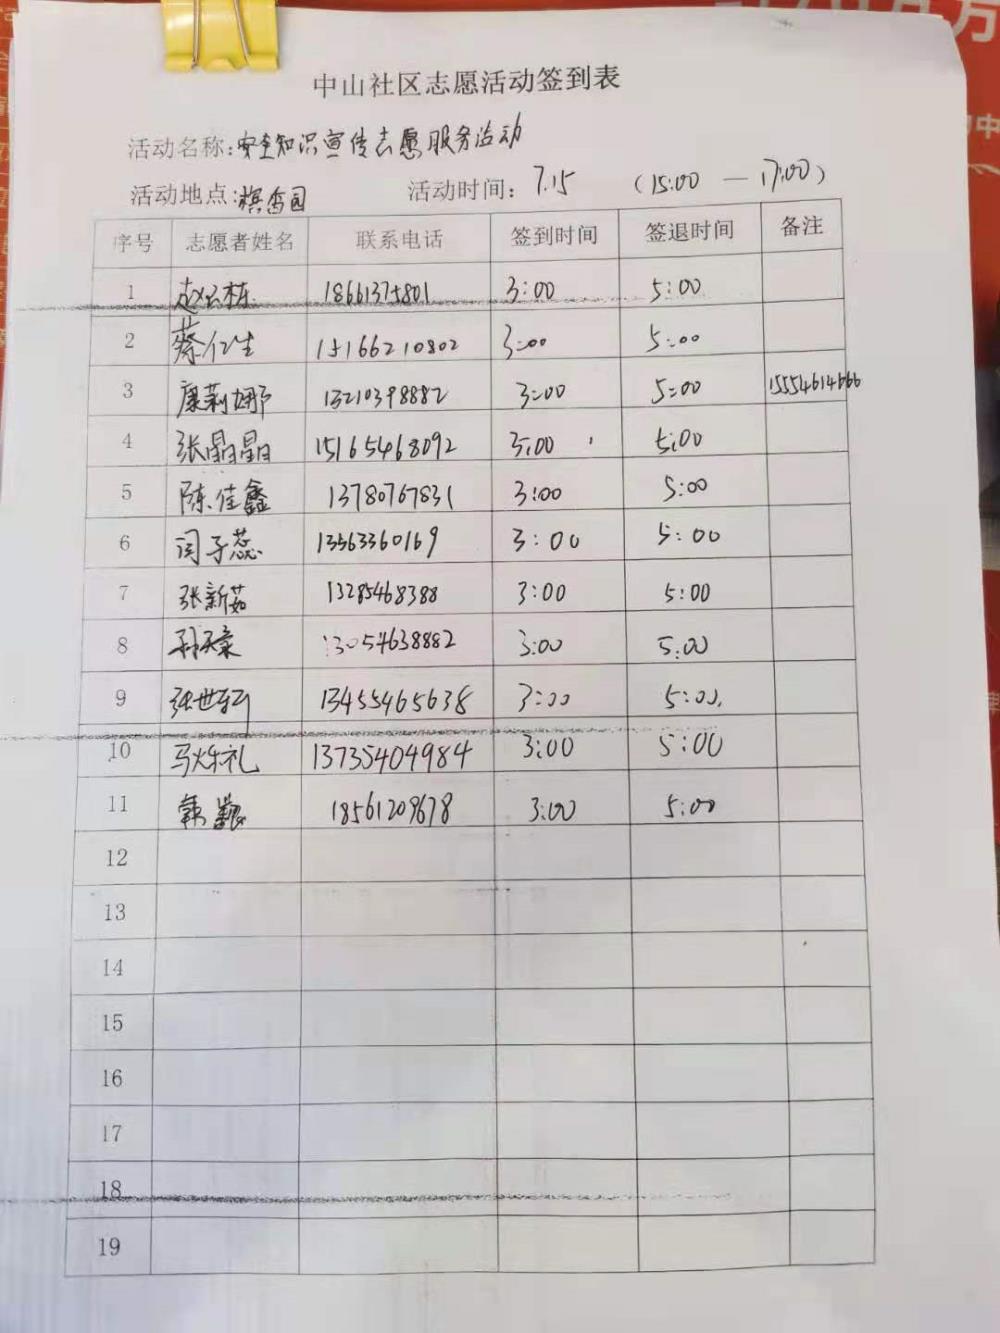 中山社区志愿活动签到表
活动名称:安全知识宣传志愿服务活动
活动地点:槟香园 活动时间: 7.15 (15:00 — 17:00)
序号 志愿者姓名 联系电话 签到时间 签退时间 备注
1 赵云栋 18661375801 3:00 5:00
2 蔡仁生 15166210802 3:00 5:00
3 康莉娜 13210398882 3:00 5:00 15554614666
4 张晶晶 15165468092 3:00 5:00
5 陈佳鑫 13780767831 3:00 5:00
6 闫子蕊 13563360169 3:00 5:00
7 张新茹 13285468388 3:00 5:00
8 孙 13054638882 3:00 5:00
9 张世 13455465638 3:00 5:00
10 马 礼 13735404984 3:00 5:00
11 韩 18561209678 3:00 5:00
12
13
14
15
16
17
18
19